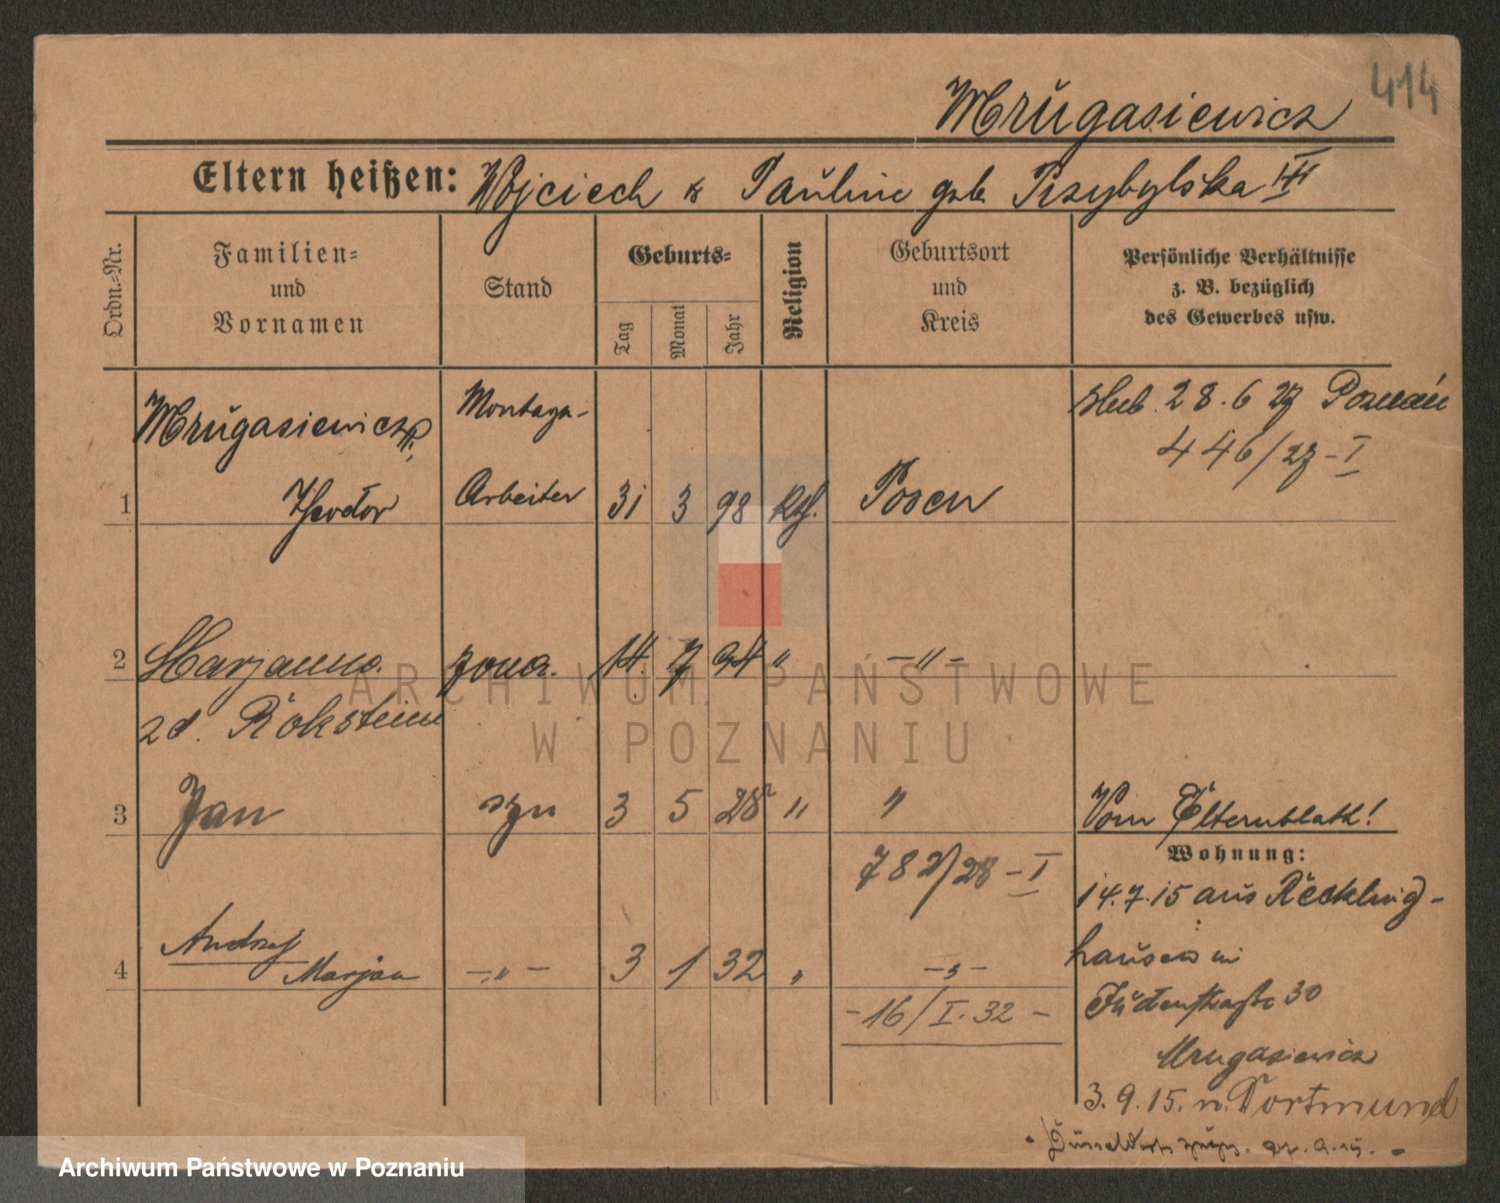 414
Mrugasiewicz
Eltern heißen: Wojciech & Pauline geb. Przybylska III
Ordn.-Nr.
Familien-
und
Vornamen
Stand
Geburts-
Tag
Monat
Jahr
Religion
Geburtsort
und
Kreis
Persönliche Verhältnisse
z. B. bezüglich
des Gewerbes usw.
Mrugasiewicz
Theodor
Montage-
Arbeiter
1 31 3 98 Kth. Posen
slub. 28.6 27 Poznań
446/27-I
2 Marjanna żona. 14. 7 94 " -"-
zd. Rokstein
3 Jan syn 3 5 28 " "
782/28-I
4 Andrzej
Marjan -"- 3 1 32 " -"-
-16/I.32-
Vom Elternblatt!
Wohnung:
14.7.15 aus Reckling-
hausen in
Judenstraße 30
Mrugasiewicz
3.9.15. n. Dortmund
ARCHIWUM PAŃSTWOWE
W POZNANIU
Archiwum Państwowe w Poznaniu